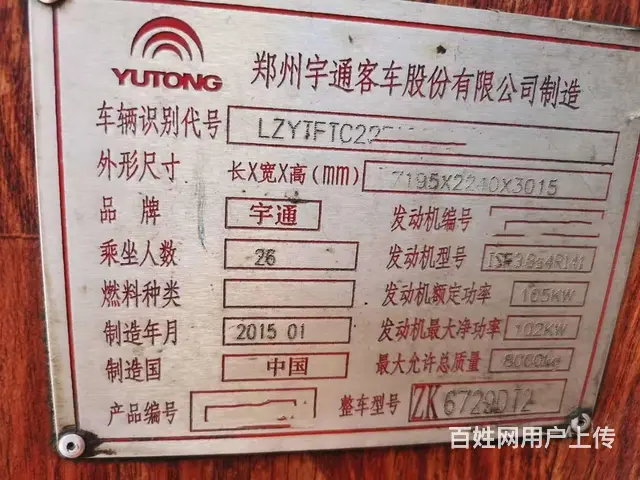 YUTONG
郑州宇通客车股份有限公司制造
车辆识别代号 LZYTFTC22
外形尺寸 长X宽X高(mm) 7195X2240X3015
品牌 宇通 发动机编号
乘坐人数 26 发动机型号 ISF3.8s4R141
燃料种类 发动机额定功率 105KW
制造年月 2015 01 发动机最大净功率 102KW
制造国 中国 最大允许总质量 8000kg
产品编号 整车型号 ZK6729DT2
百姓网用户上传